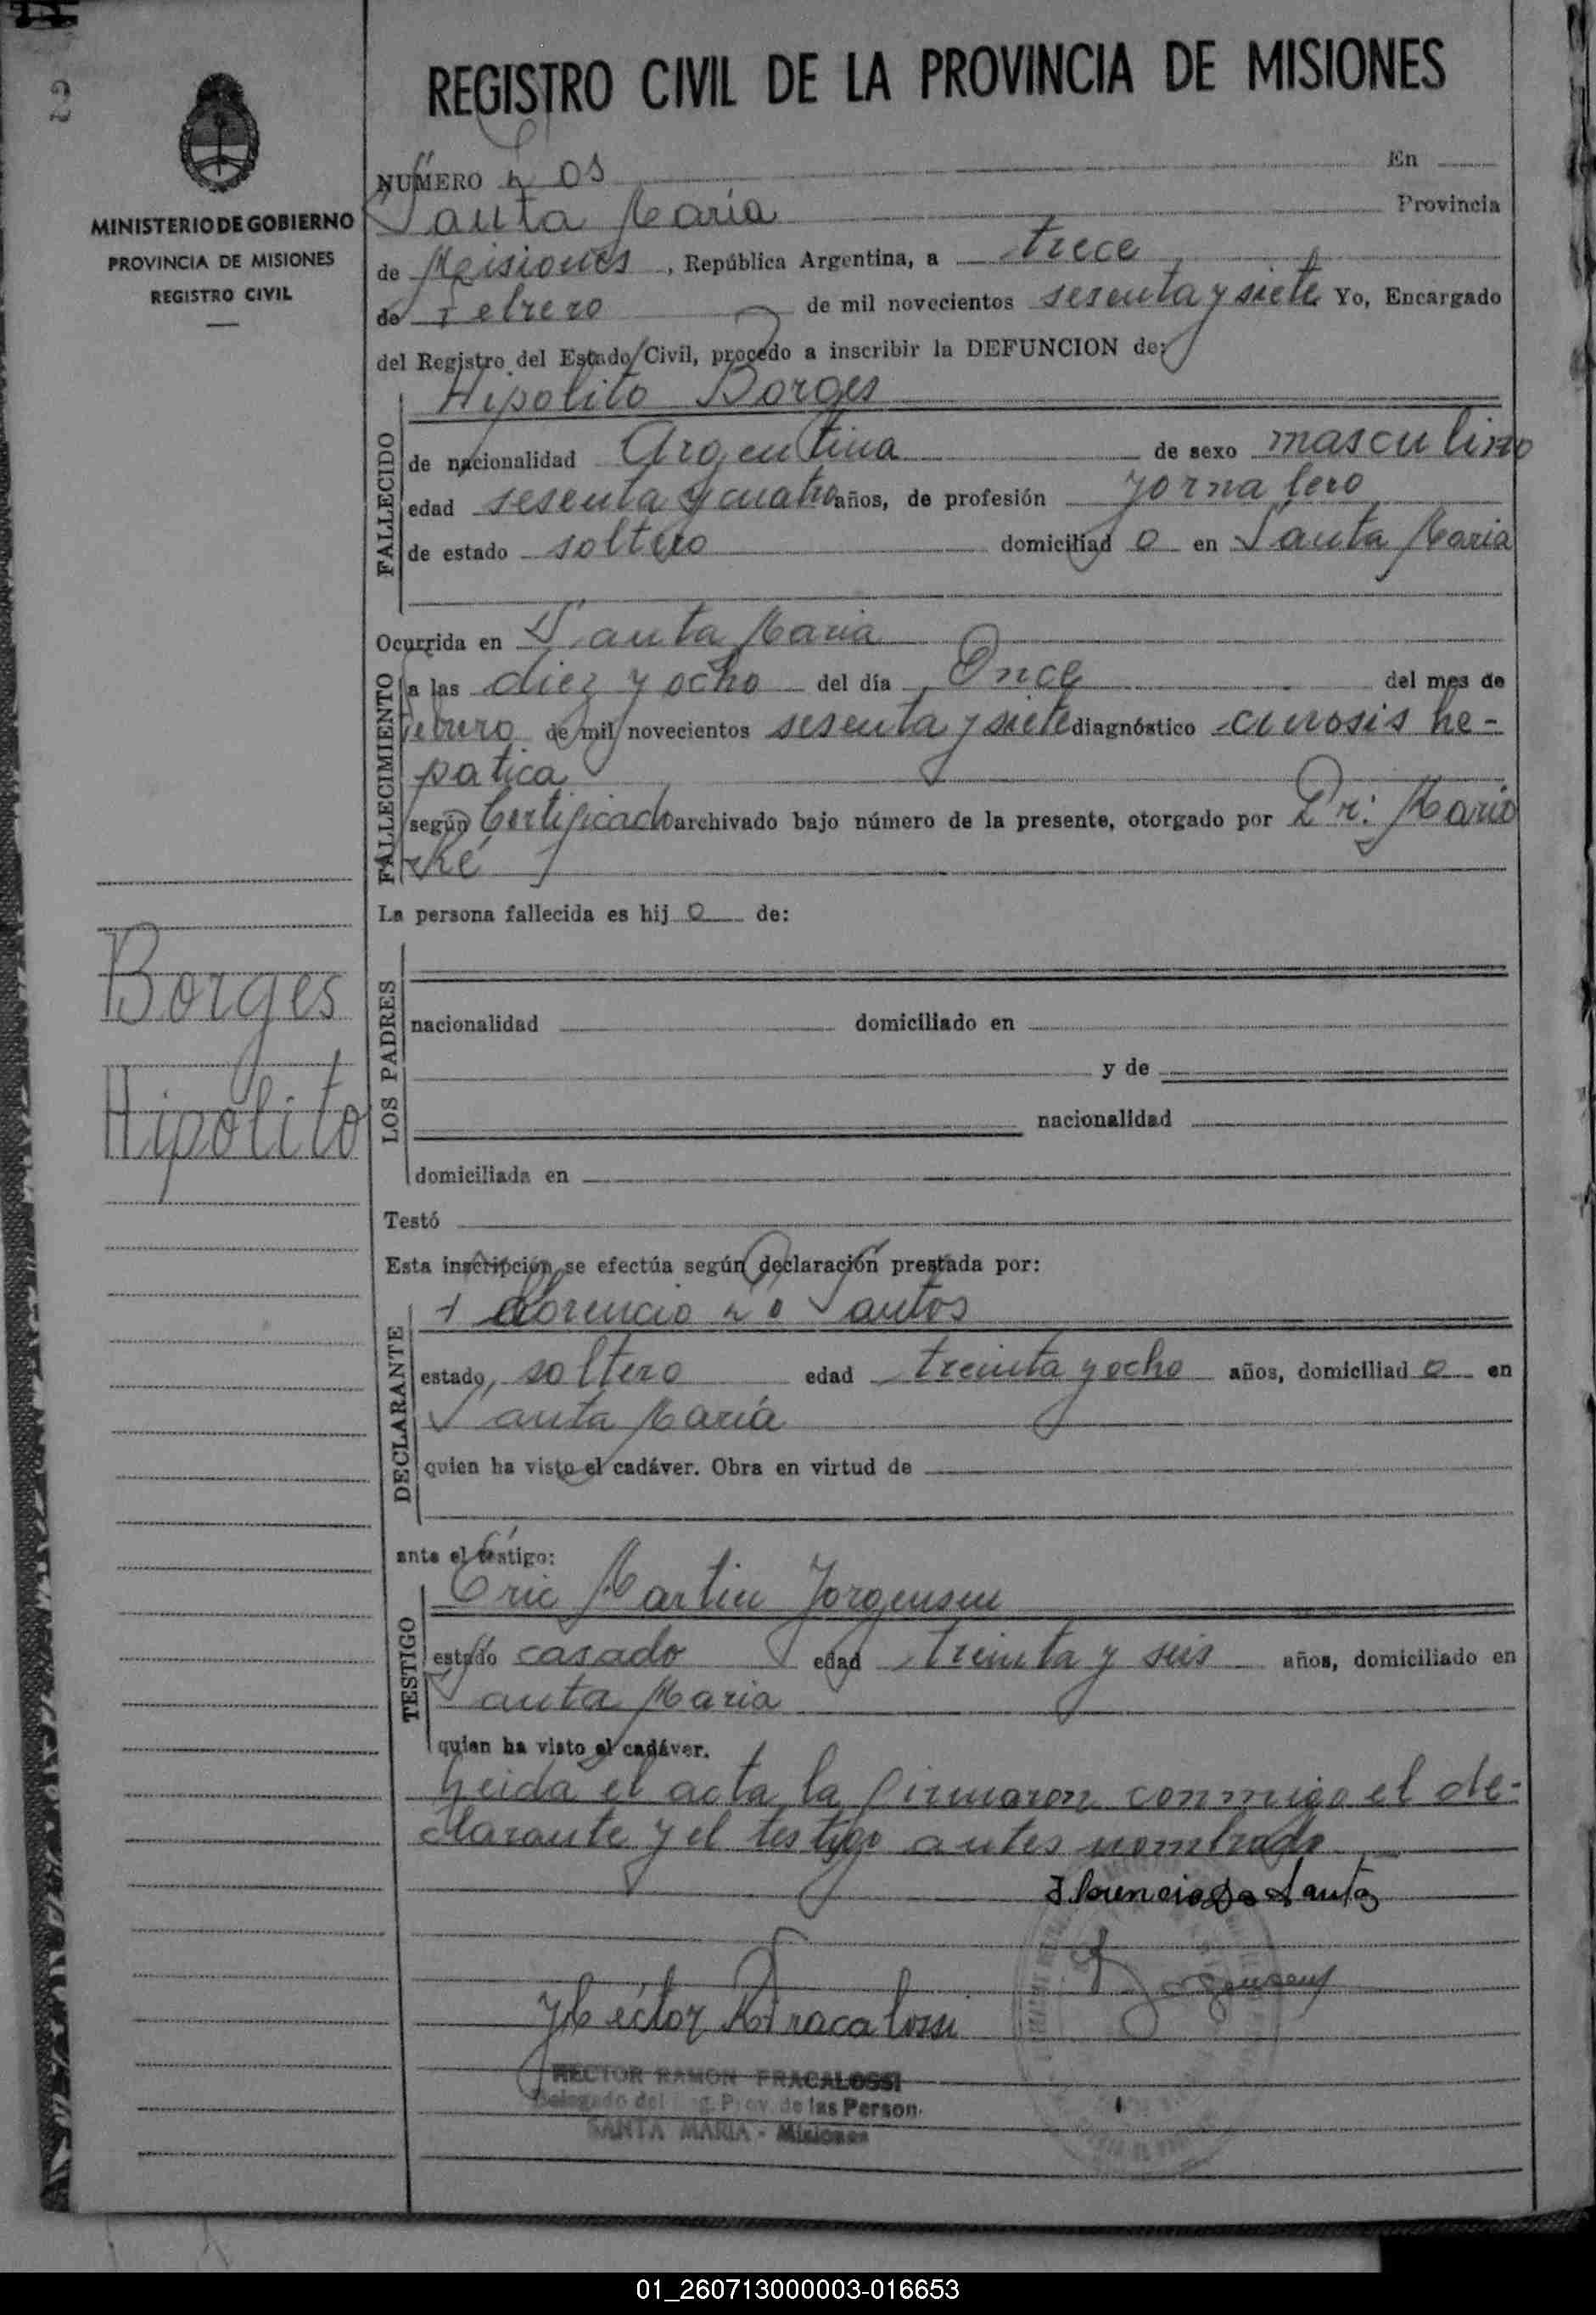 2
REGISTRO CIVIL DE LA PROVINCIA DE MISIONES
MINISTERIO DE GOBIERNO
PROVINCIA DE MISIONES
REGISTRO CIVIL
NUMERO Dos En
Santa Maria Provincia
de Misiones, República Argentina, a trece
de Febrero de mil novecientos sesenta y siete Yo, Encargado
del Registro del Estado Civil, procedo a inscribir la DEFUNCION de:
Hipolito Borges
FALLECIDO
de nacionalidad Argentina de sexo masculino
edad sesenta y cuatro años, de profesión jornalero
de estado soltero domiciliad o en Santa Maria
FALLECIMIENTO
Ocurrida en Santa Maria
a las diez y ocho del día Once del mes de
febrero de mil novecientos sesenta y siete diagnóstico cirrosis he-
patica
según Certificado archivado bajo número de la presente, otorgado por Dr: Mario
La persona fallecida es hij o de:
LOS PADRES
nacionalidad domiciliado en
y de
nacionalidad
domiciliada en
Testó
Esta inscripción se efectúa según declaración prestada por:
DECLARANTE
Florencio Do Santos
estado, soltero edad treinta y ocho años, domiciliad o en
Santa Maria
quien ha visto el cadáver. Obra en virtud de
ante el testigo:
TESTIGO
Eric Martin Jorgensen
estado casado edad treinta y seis años, domiciliado en
Santa Maria
quien ha visto el cadáver.
Leida el acta la firmaron conmigo el de-
clarante y el testigo antes nombrado
Florencio Do Santos
Jorgensen
Héctor R Fracalossi
HECTOR RAMON FRACALOSSI
Delegado del Reg. Prov. de las Person.
SANTA MARIA - Misiones
Borges
Hipólito
01_260713000003-016653